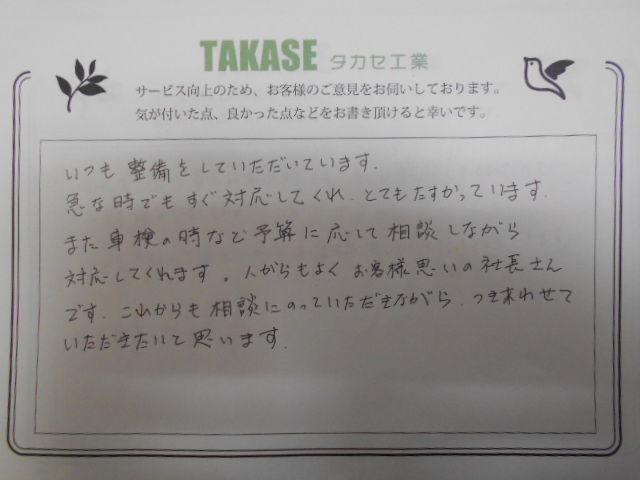 TAKASE タカセ工業
サービス向上のため、お客様のご意見をお伺いしております。
気が付いた点、良かった点などをお書き頂けると幸いです。
いつも整備をしていただいています.
急な時でもすぐ対応してくれ.とてもたすかっています.
また車検の時など予算に応じて相談しながら
対応してくれます。人がらもよくお客様思いの社長さん
です.これからも相談にのっていただきながら.つき合わせて
いただきたいと思います.